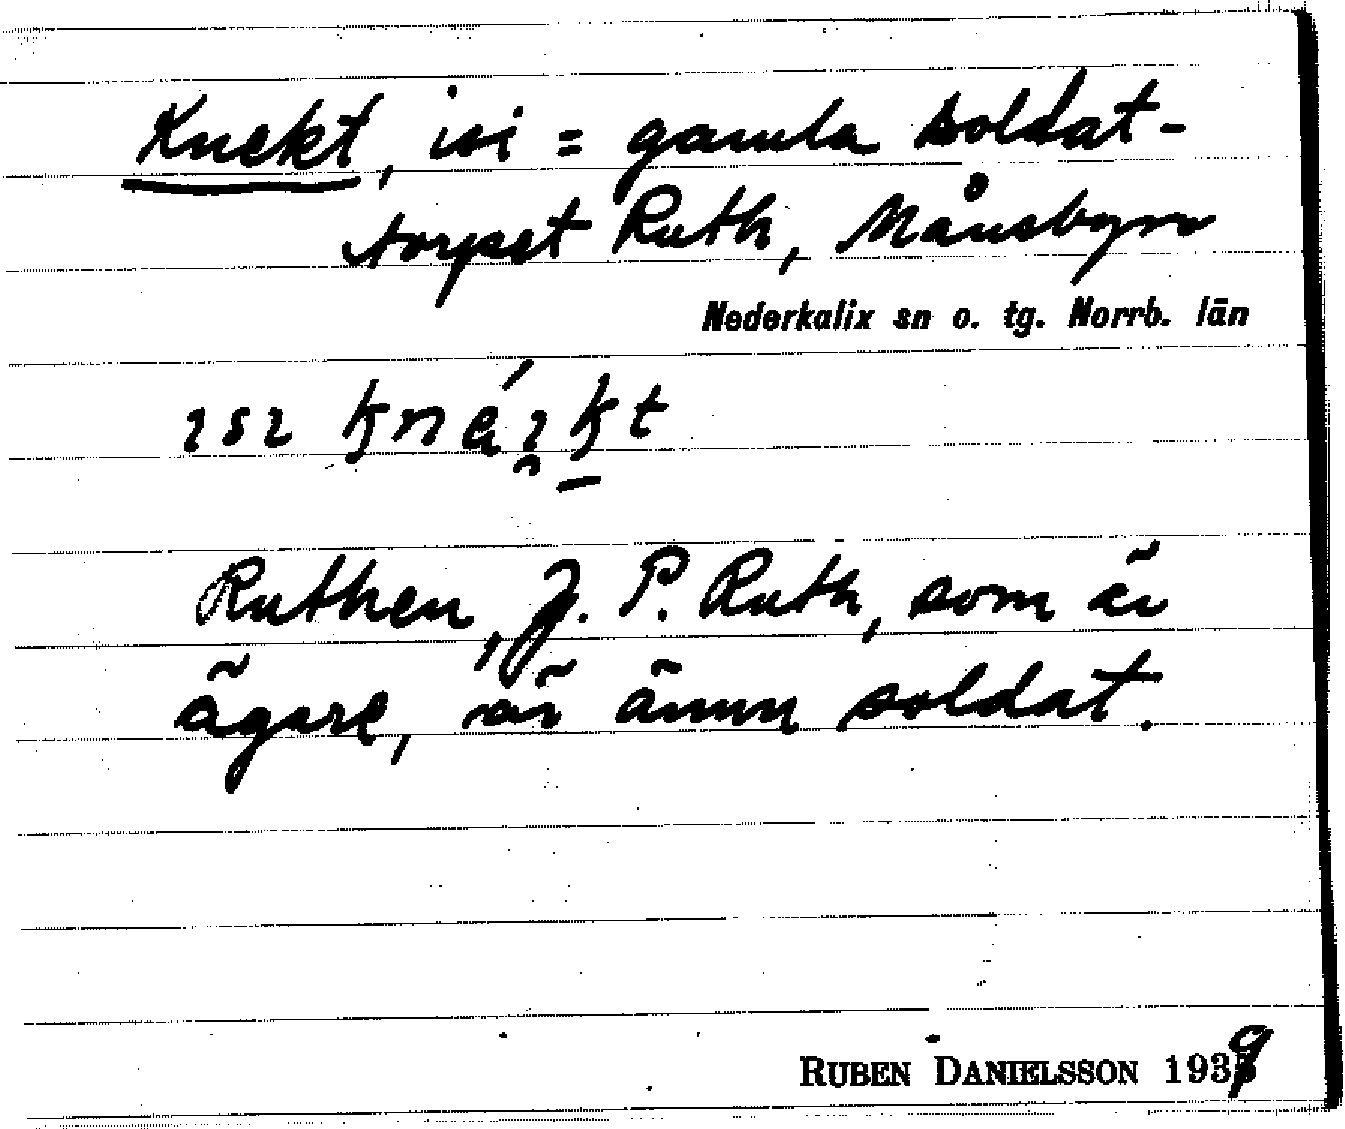 Knekt, isi = gamla soldat-
torpet Ruth, Månsbyn
Nederkalix sn o. tg. Norrb. län
Ruthen, J. P. Ruth, som är
ägare, är ännu soldat.
RUBEN DANIELSSON 1939